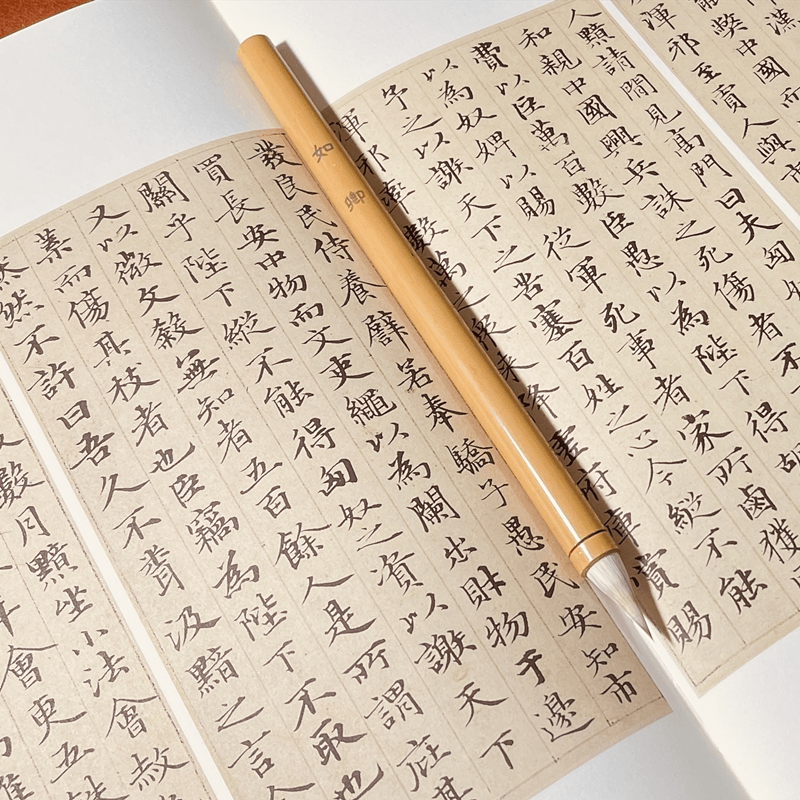 漢
獘中國而
渾邪至賈人與市
人黯請閒見高門曰夫匈
和親中國興兵誅之死傷者不
費以臣萬百數臣愚以為陛下得胡
以為奴婢以賜從軍死事者家所鹵獲
予之以謝天下之苦塞百姓之心今縱不能
渾邪率數萬之衆来降虛府庫賞賜
發良民侍養譬若奉驕子愚民安知市
買長安中物而文吏繩以為闌出財物于邊
關乎陛下縱不能得匈奴之資以謝天下
又以微文殺無知者五百餘人是所謂庇其
葉而傷其枝者也臣竊為陛下不取也
然不許曰吾久不聞汲黯之言
數月黯坐小法會赦
年會更五銖
如卿